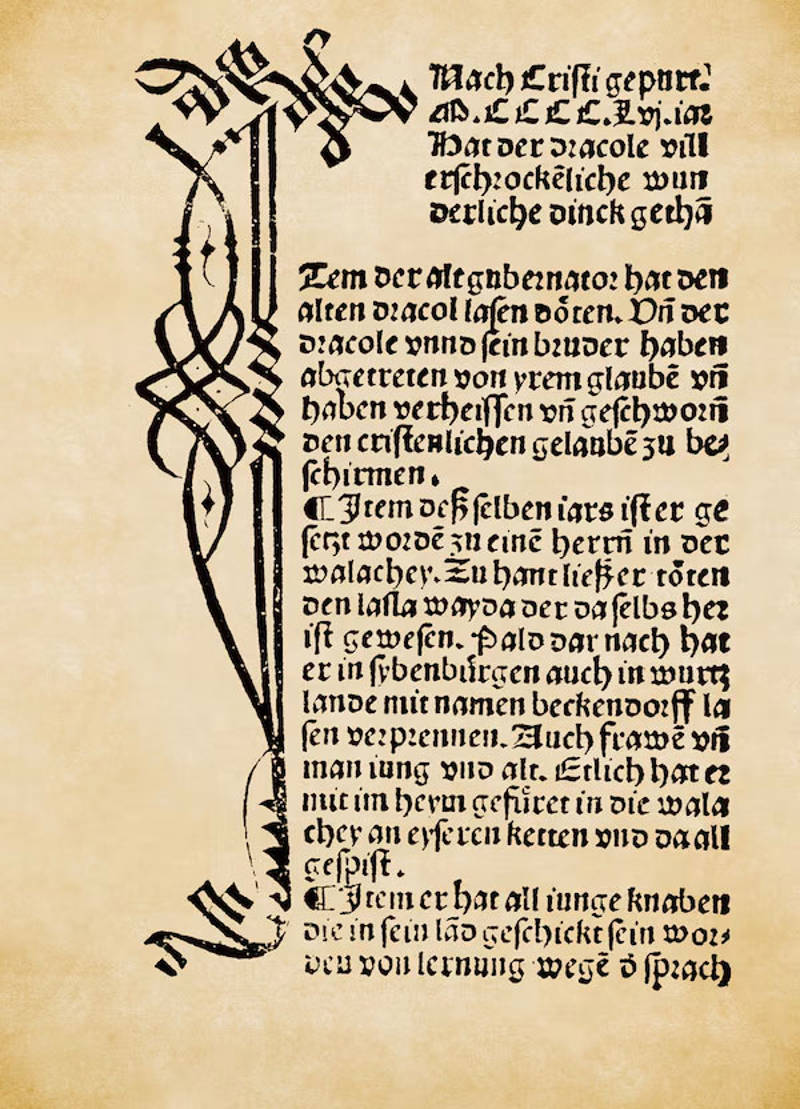 Nach Cristi gepurt.
M.CCCC.Lvj.iar
Hat der dracole vill
erschrockēliche wun
derliche dinck gethā
Item der alt gubernator hat den
alten dracol lasen dȏten. Vñ der
dracole vnnd sein bruder haben
abgetreten von yrem glaubē vñ
haben verheissen vñ geschworñ
den cristenlichen gelaubē zu be⸗
schirmen.
¶ Item deß selben iars ist er ge
setzt wordē zu einē herrñ in der
walachey. Zu hant ließ er tȏten
den lasla wayda der da selbs her
ist gewesen. Pald dar nach hat
er in sybenbürgen auch in wurtz
lande mit namen beckendorff la
sen verprennen. Auch frawē vñ
man iung vnd alt. Etlich hat er
mit im heym gefüret in die wala
chey an eyseren ketten vnd da all
gespist.
¶ Item er hat all iunge knaben
die in sein lād geschickt sein wor⸗
den von lernung wegē d̄ sprach